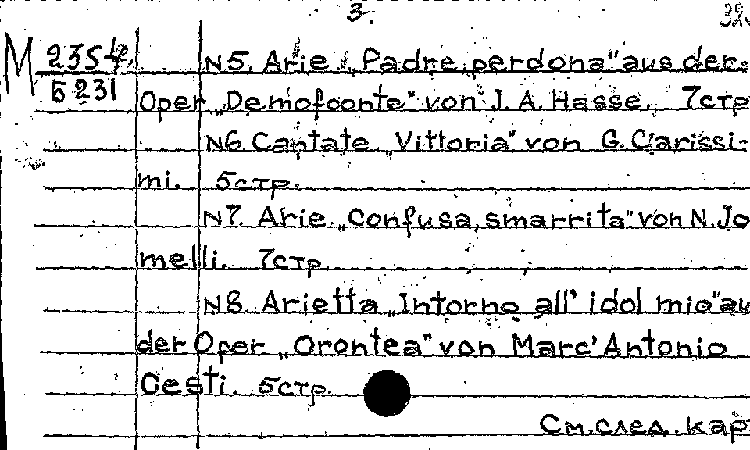 3.
M 2354
5231
N5. Arie „Padre, perdona" aus der
Oper „Demofoonte" von J. A. Hasse, 7стр
N6. Cantate „Vittoria" von G. Carissi-
mi. 5стр.
N7. Arie „Confusa, smarrita" von N. Jo
melli. 7стр
N8. Arietta „Intorno all' idol mio" au
der Oper „Orontea" von Marc' Antonio
Cesti. 5стр.
См. след. кар